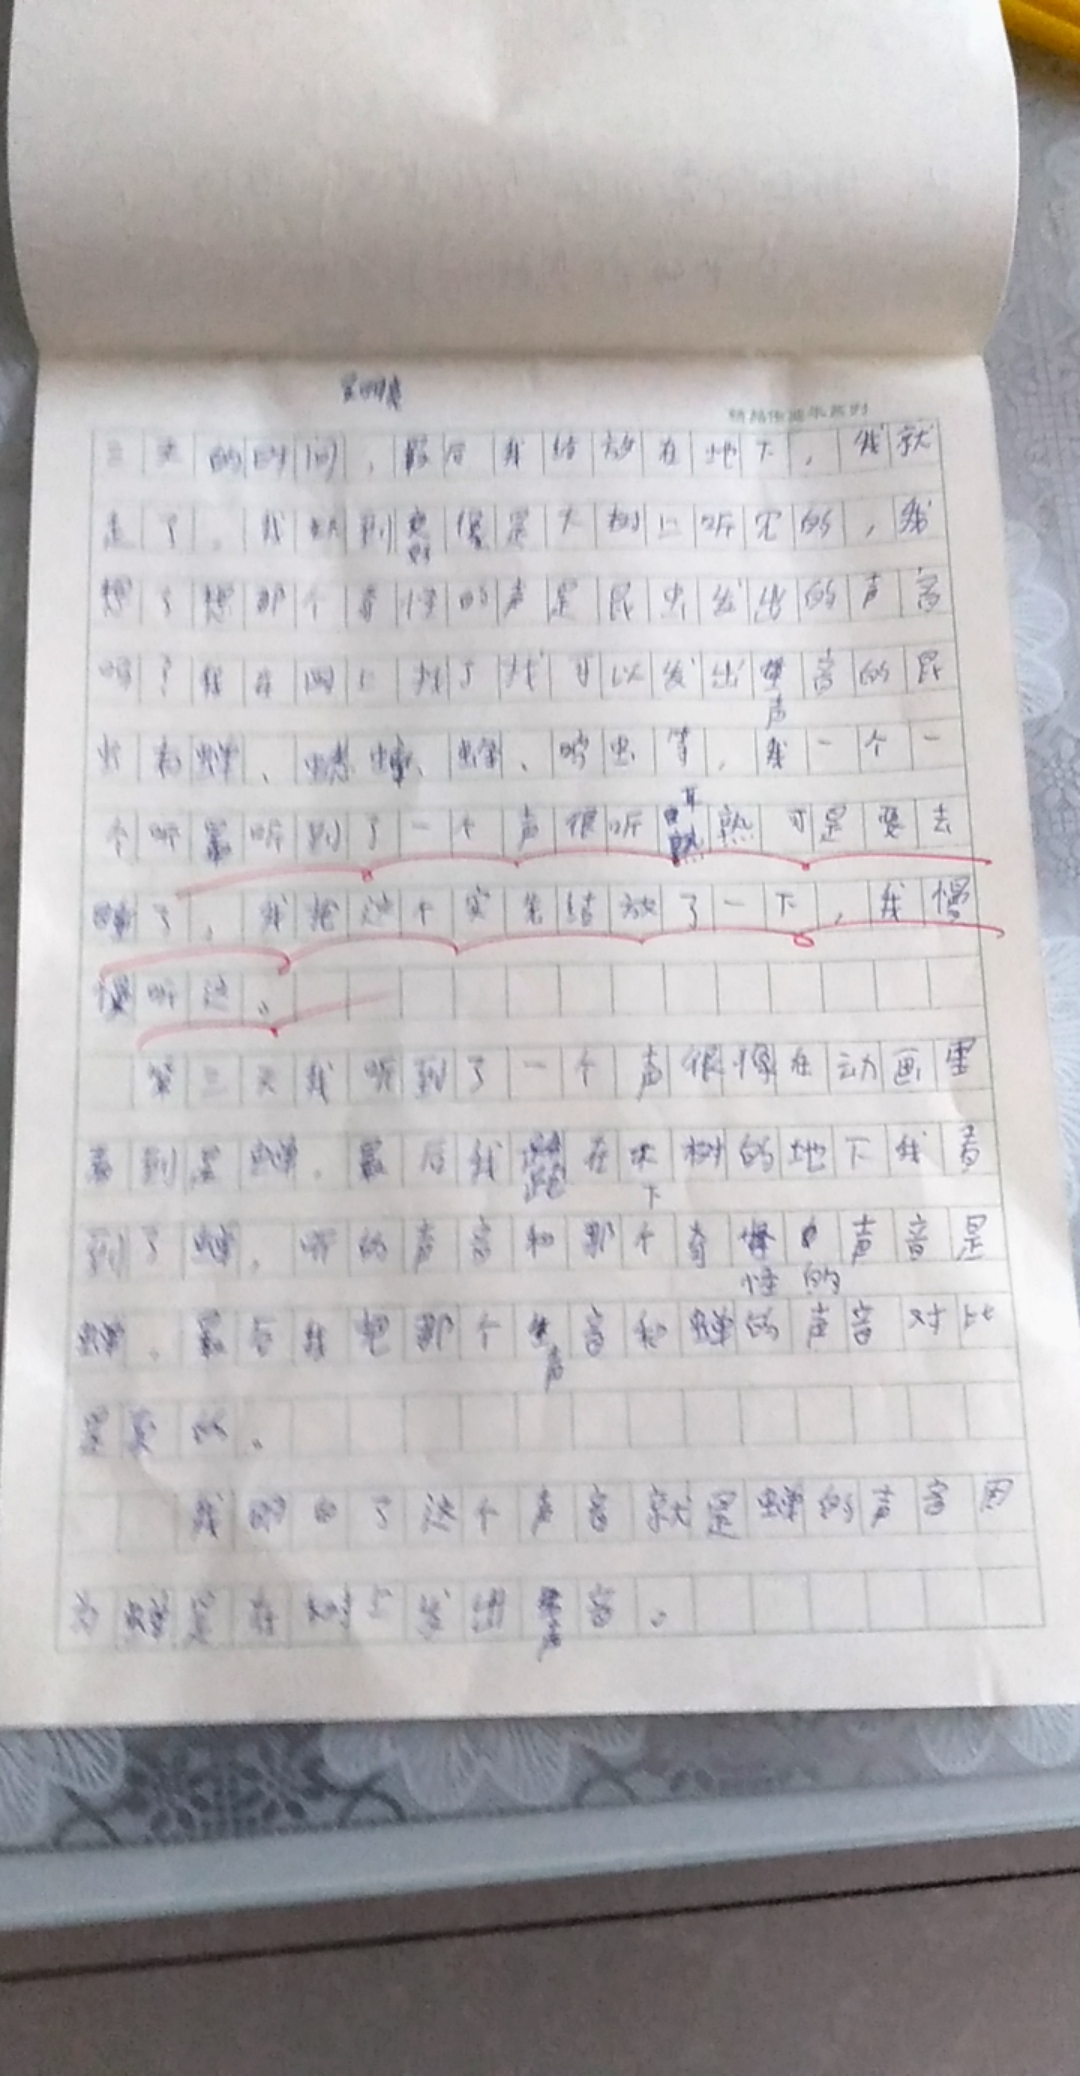 三天的时间，最后我结放在地下，我就
走了。我想到像是大树上听完的，我
想了想那个奇怪的声是昆虫发出的声音
吗？我在网上找了找可以发出声音的昆
虫有蝉、蟋蟀、蝉、鸣虫等，我一个一
个听最听到了一个声很听耳熟可是要去
睡了，我把这个实先结放了一下，我慢
慢听这。
第三天我听到了一个声很像在动画里
看到是蝉。最后我跑在大树的地下我看
到了蝉。听的声音和那个奇怪的声音是
蝉。最后我把那个声音和蝉的声音对比
是真的。
我明白了这个声音就是蝉的声音因
为蝉是在树上发出声音。